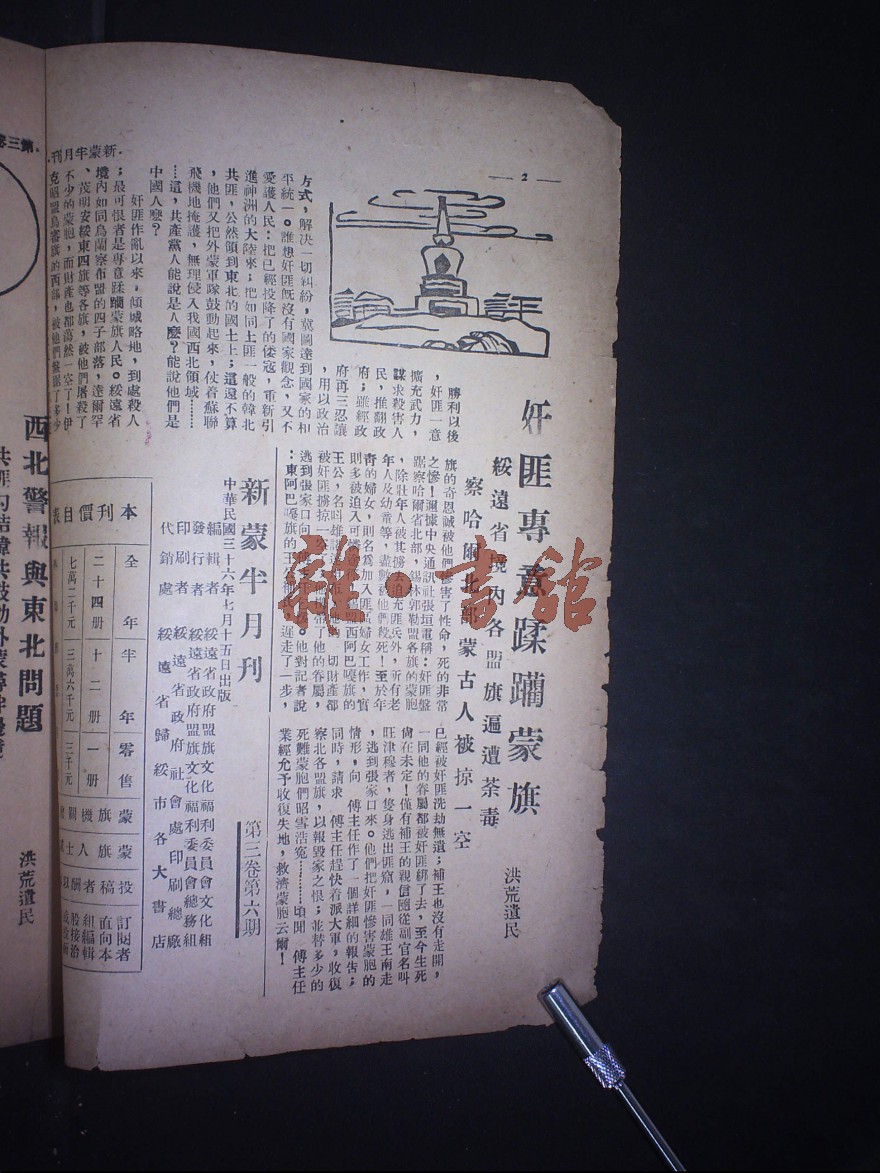 — 2 —
新蒙半月刊.
奸匪專意蹂躪蒙旗
綏遠省境內各盟旗遍遭荼毒
察哈爾北部蒙古人被掠一空
洪荒遺民
勝利以後
，奸匪一意
擴充武力，
謀求殺害人
民，推翻政
府；雖經政
府再三忍讓
，用以政治
方式，解決一切糾紛，冀圖達到國家的和
平統一。誰想奸匪旣沒有國家觀念，又不
愛護人民：把已經投降了的倭寇，重新引
進神洲的大陸來；把如同土匪一般的韓北
共匪，公然領到東北的國土上；這還不算
，他們又把外蒙軍隊鼓動起來，仗着蘇聯
飛機地掩護，無理侵入我國西北領域……
…這，共產黨人能說是人麽？能說他們是
中國人麽？
奸匪作亂以來，傾城略地，到處殺人
；最可恨者是專意蹂躪蒙旗人民。綏遠省
境內如同烏蘭察布盟的四子部落，達爾罕
、茂明安綏東四旗等各旗，被他們屠殺了
不少的蒙胞，而財產也都蕩然一空了！伊
克昭盟烏審旗的西部，被他們盤踞了多少
旗的奇恩誠被他們害了性命，死的非常
之慘！彌據中央通訊社張垣電稱：奸匪盤
踞察哈爾省北部，錫林郭勒盟各旗的蒙胞
，除壯年人被其擄去迫充匪兵外，所有老
年人及幼童等，盡數他們殺死！至於年
靑的婦女，則名爲加入匪區婦女工作，實
則多被迫入可西阿巴嘎旗的
王公，名叫雄切財產都
被奸匪擄掠一帶了他的眷屬，
逃到張家口向。他對記者說
：東阿巴嘎旗的王遲走了一步，
已經被奸匪洗劫無遺；補王也沒有走開，
一同他的眷屬都被奸匪綁了去，至今生死
尙在未定！僅有補王的親信隨從副官名叫
旺津穆者，隻身逃出匪窟，一同雄王南走
，逃到張家口來。他們把奸匪慘害蒙胞的
情形，向 傅主任作了一個詳細的報吿；
同時，請求 傅主任趕快着派大軍，收復
察北各盟旗，以報毀家之恨；並替多少的
死難蒙胞們昭雪浩寃………頃聞 傅主任
業經允予收復失地，救濟蒙胞云爾！
新蒙半月刊
第三卷第六期
中華民國三十六年七月十五日出版
編輯者 綏遠省政府盟旗文化福利委員會文化組
發行者 綏遠省政府盟旗文化福利委員會總務組
印刷者 綏遠省政府社會處印刷總廠
代銷處 綏遠省歸綏市各大書店
本刊價目表
全年 半年 零售
二十四册 十二册 一册
七萬二千元 三萬六千元 三千元
西北警報與東北問題
洪荒遺民
雜·書館